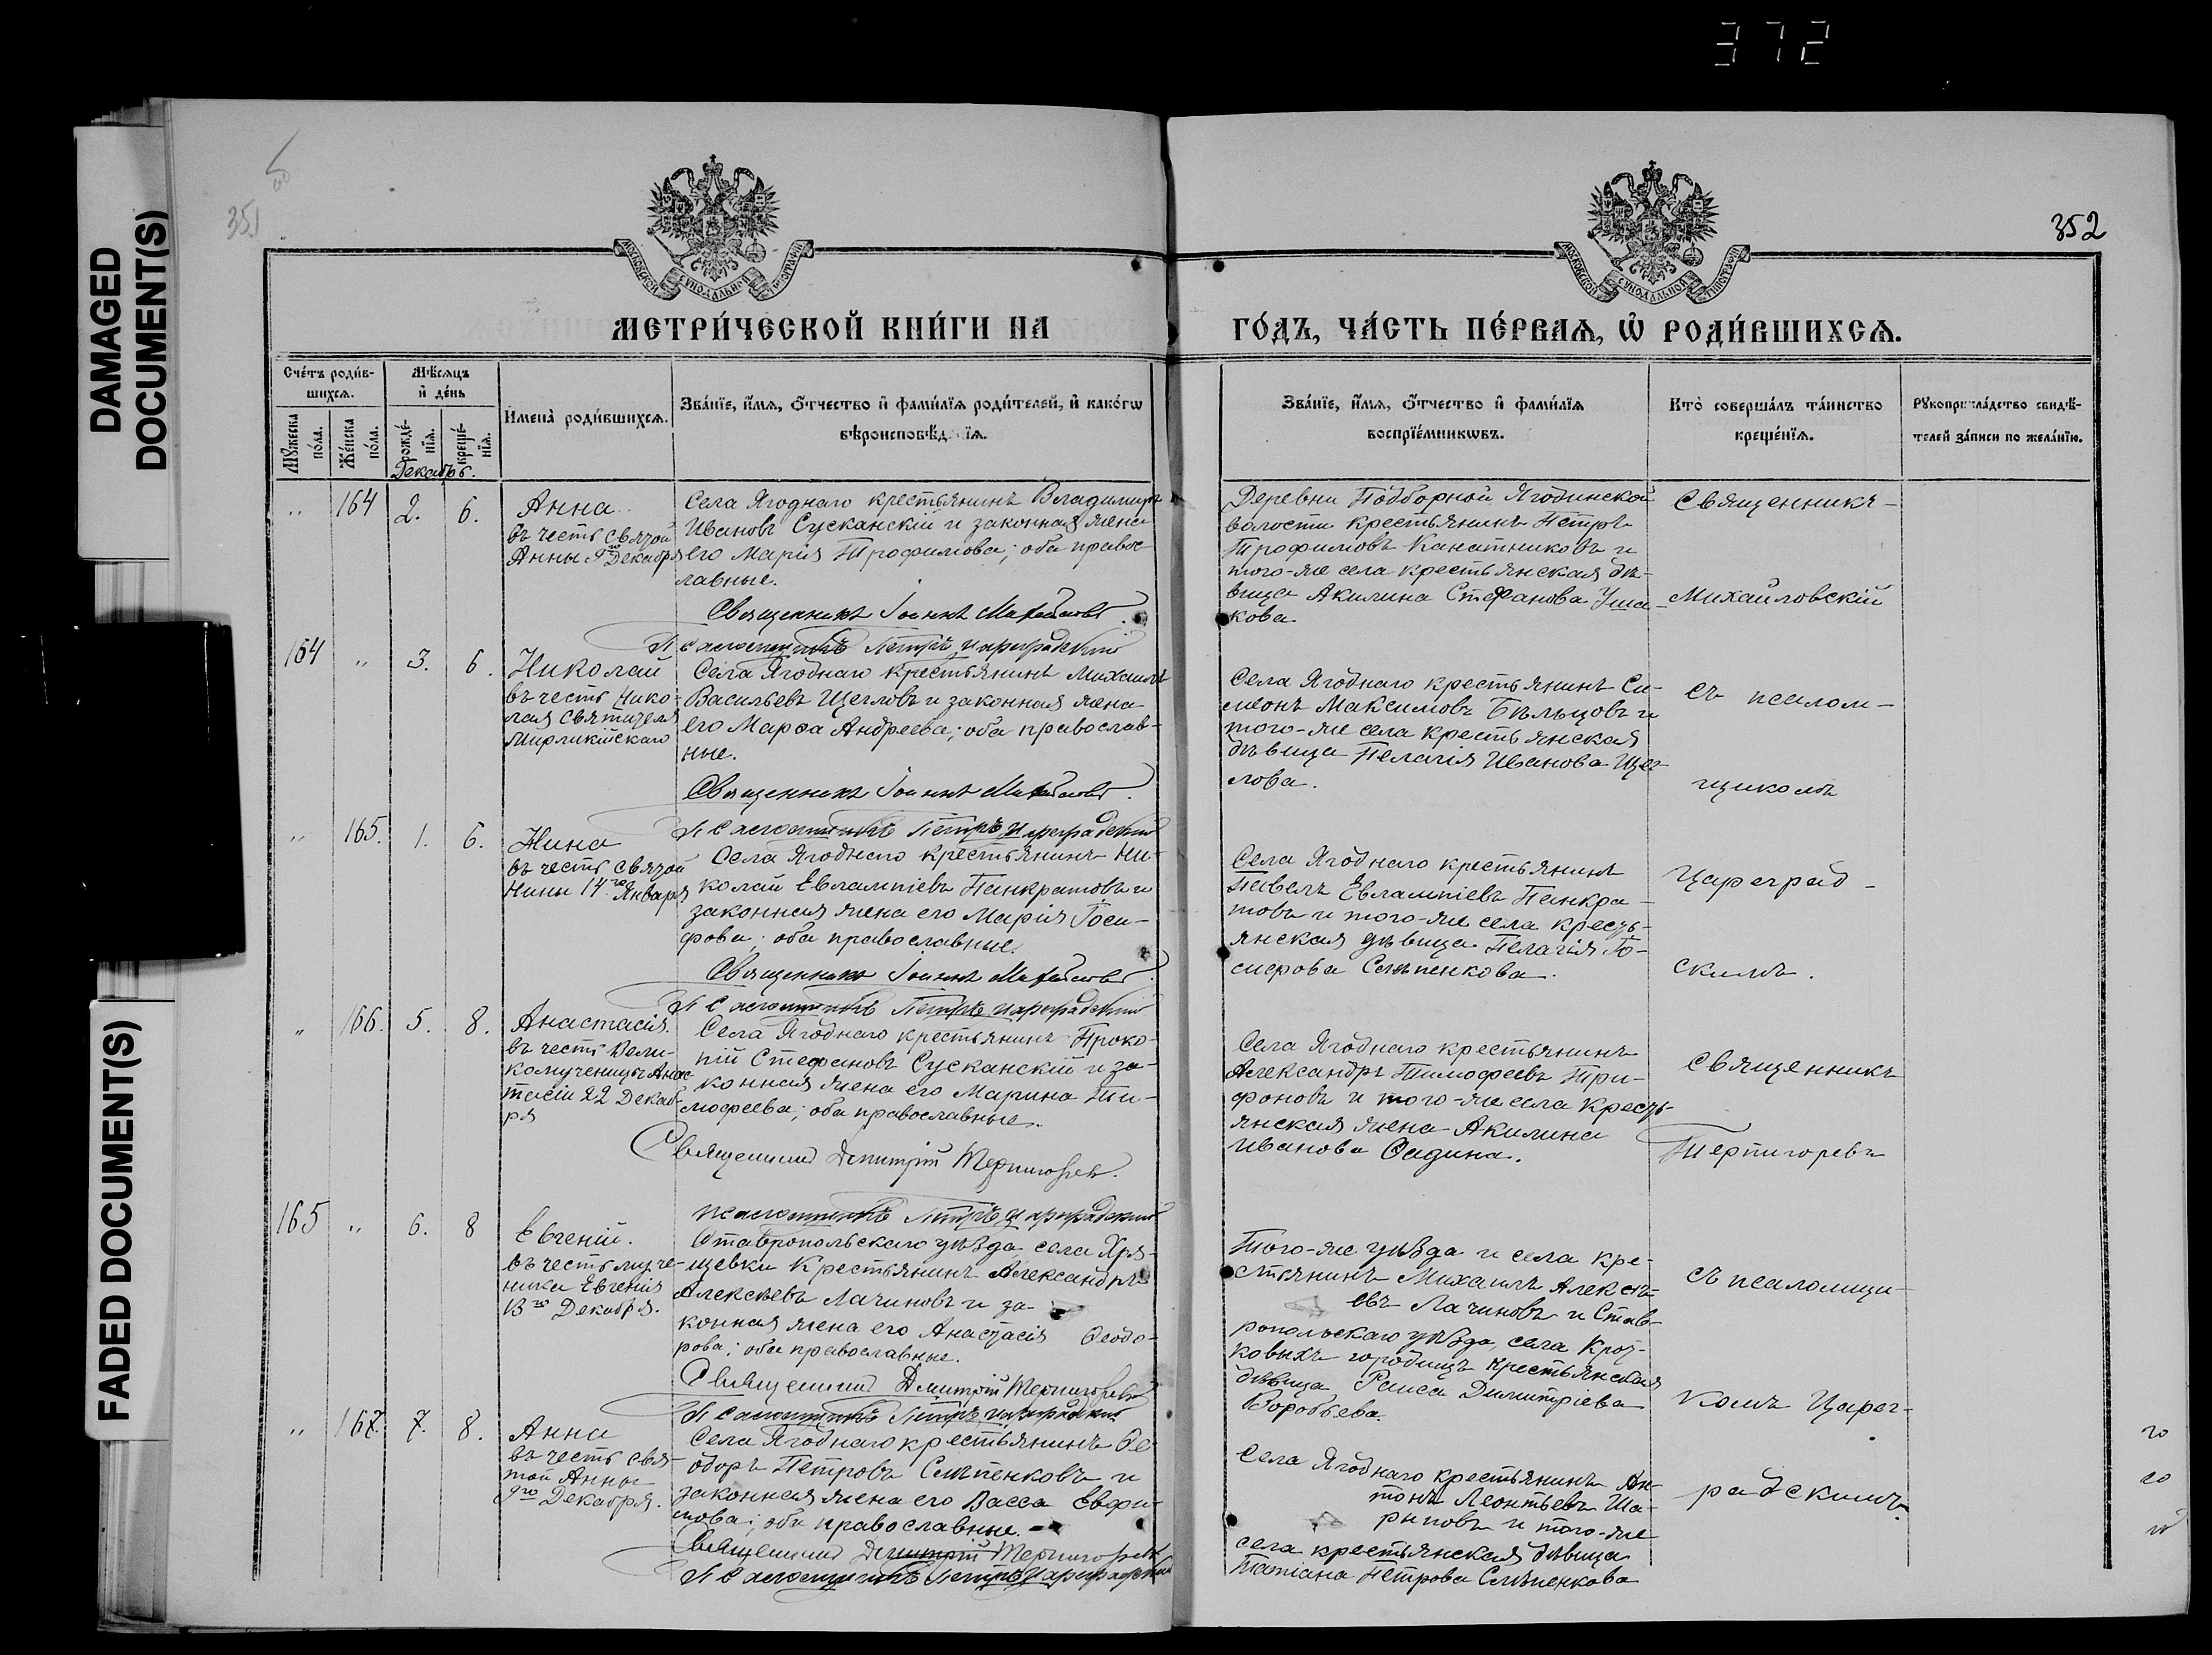 372
DAMAGED
DOCUMENT(S)
FADED DOCUMENT(S)
351
352
МОСКОВСКОЙ СѴНОДАЛЬНОЙ ТИПОГРАФІИ
МОСКОВСКОЙ СѴНОДАЛЬНОЙ ТИПОГРАФІИ
МЕТРИ́ЧЕСКОЙ КНИ́ГИ НА
ГО́ДЪ, ЧА́СТЬ ПЕ́РВАѦ, Ѡ҆ РОДИ́ВШИХСѦ.
Сче́тъ роди́в-
шихсѧ.
Мꙋжеска по́ла.
Же́нска по́ла.
Мѣ́сѧцъ
и҆ де́нь
рожде́-
нїѧ.
креще́-
нїѧ.
Имена̀ роди́вшихсѧ.
Зва́нїе, и҆́мѧ, ѻ҆́тчество и҆ фами́лїѧ роди́телей, и҆ како́гѡ
вѣроисповѣ́д їѧ.
Зва́нїе, и҆́мѧ, ѻ҆́тчество и҆ фами́лїѧ
воспрїе́мникѡвъ.
Кто̀ соверша́лъ та́инство
креще́нїѧ.
Рꙋкоприкла́дство свидѣ́-
телей за́писи по жела́нїю.
Декабрь.
" 164 2. 6.
Анна
въ честь святой
Анны 9го Декабря
Села Ягоднаго крестьянинъ Владимiръ
Ивановъ Сусканскій и законная жена
его Марія Трофимова; оба правос-
лавные.
Священникъ Іоаннъ Михайловъ
Псаломщикъ Петръ Цареградскій
Деревни Подборной Ягодинской
волости крестьянинъ Петръ
Трофимовъ Канатниковъ и
того-же села крестьянская дѣ-
вица Акилина Стефанова Уша-
кова.
Священникъ
Михайловскій
164 " 3. 6.
Николай
въ честь Нико-
лая Святителя
Мирликійскаго
Села Ягоднаго крестьянинъ Михаилъ
Васильевъ Щегловъ и законная жена
его Марѳа Андреева; оба православ-
ные.
Священникъ Іоаннъ Михайловъ
Псаломщикъ Петръ Цареградскій
Села Ягоднаго крестьянинъ Си-
меонъ Максимовъ Бѣльцовъ и
того-же села крестьянская
дѣвица Пелагія Иванова Щег-
лова.
съ псалом-
щикомъ
" 165. 1. 6.
Нина
въ честь святой
Нины 14го Января
Села Ягоднаго крестьянинъ Ни-
колай Евлампіевъ Панкратовъ и
законная жена его Марія Іоси-
фова; оба православные.
Священникъ Іоаннъ Михайловъ
Псаломщикъ Петръ Цареградскій
Села Ягоднаго крестьянинъ
Павелъ Евлампіевъ Панкра-
товъ и того-же села кресть-
янская дѣвица Пелагія Іо-
сифова Слѣпенкова.
Цареград-
скимъ.
" 166. 5. 8.
Анастасія.
въ честь Вели-
комученицы Анас-
тасіи 22 Декаб-
ря
Села Ягоднаго крестьянинъ Проко-
пій Стефановъ Сусканскій и за-
конная жена его Марина Ти-
мофеева; оба православные.
Священникъ Димитрій Терпигоревъ.
Псаломщикъ Петръ Цареградскій
Села Ягоднаго крестьянинъ
Александръ Тимофеевъ Три-
фоновъ и того-же села кресть-
янская жена Акилина
Иванова
Священникъ
Терпигоревъ
165 " 6. 8
Евгеній.
въ честь муче-
ника Евгенія
13го Декабря.
Ставропольскаго уѣзда села Хря-
щевки Крестьянинъ Александръ
Алексѣевъ Лачиновъ и за-
конная жена его Анастасія Ѳеодо-
рова; оба православные.
Священникъ Димитрій Терпигоревъ
Псаломщикъ Петръ Цареградскій
Того-же уѣзда и села кре-
стьянинъ Михаилъ Алексѣ-
евъ Лачиновъ и Став-
ропольскаго уѣзда, села Крот-
ковыхъ городищъ крестьянская
дѣвица Раиса Димитріева
Воробьева.
съ псаломщи-
комъ Царег-
" 167. 7. 8.
Анна
въ честь свя-
той Анны
9го Декабря.
Села Ягоднаго крестьянинъ Ѳе-
одоръ Петровъ Слѣпенковъ и
законная жена его Васса Евфи-
мова; оба православные.
Священникъ Димитрій Терпигоревъ
Псаломщикъ Петръ Цареградскій
Села Ягоднаго крестьянинъ Ан-
тонъ Леонтьевъ Ша-
рыповъ и того-же
села крестьянская дѣвица
Татіана Петрова Слѣпенкова
радскимъ.